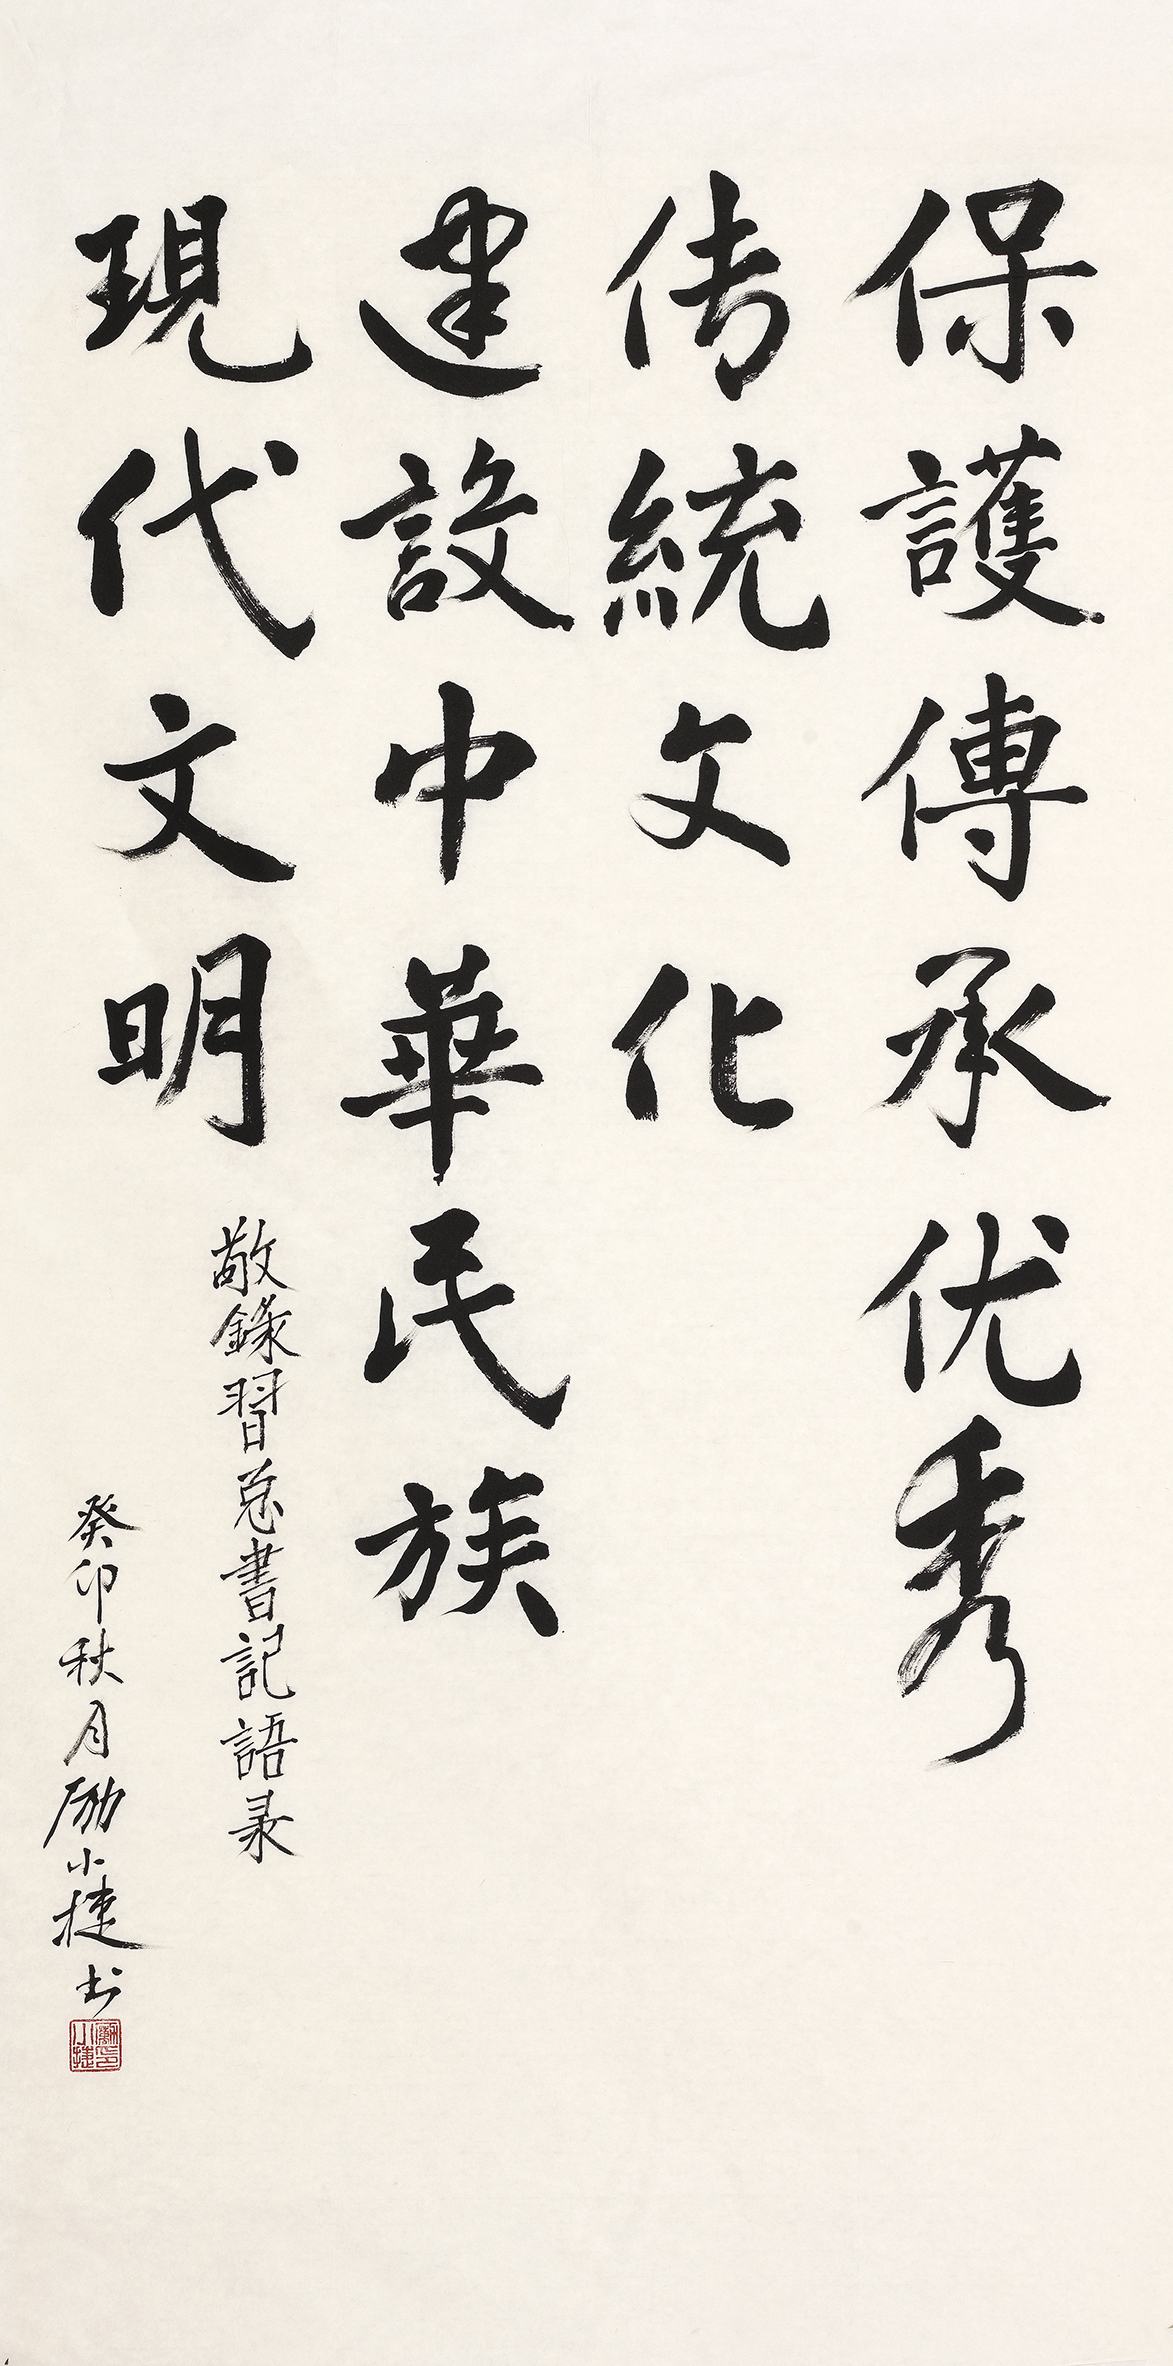 保護傳承优秀
传統文化
建設中華民族
現代文明
敬錄習总書記語录
癸卯秋月励小捷书
勵小捷印